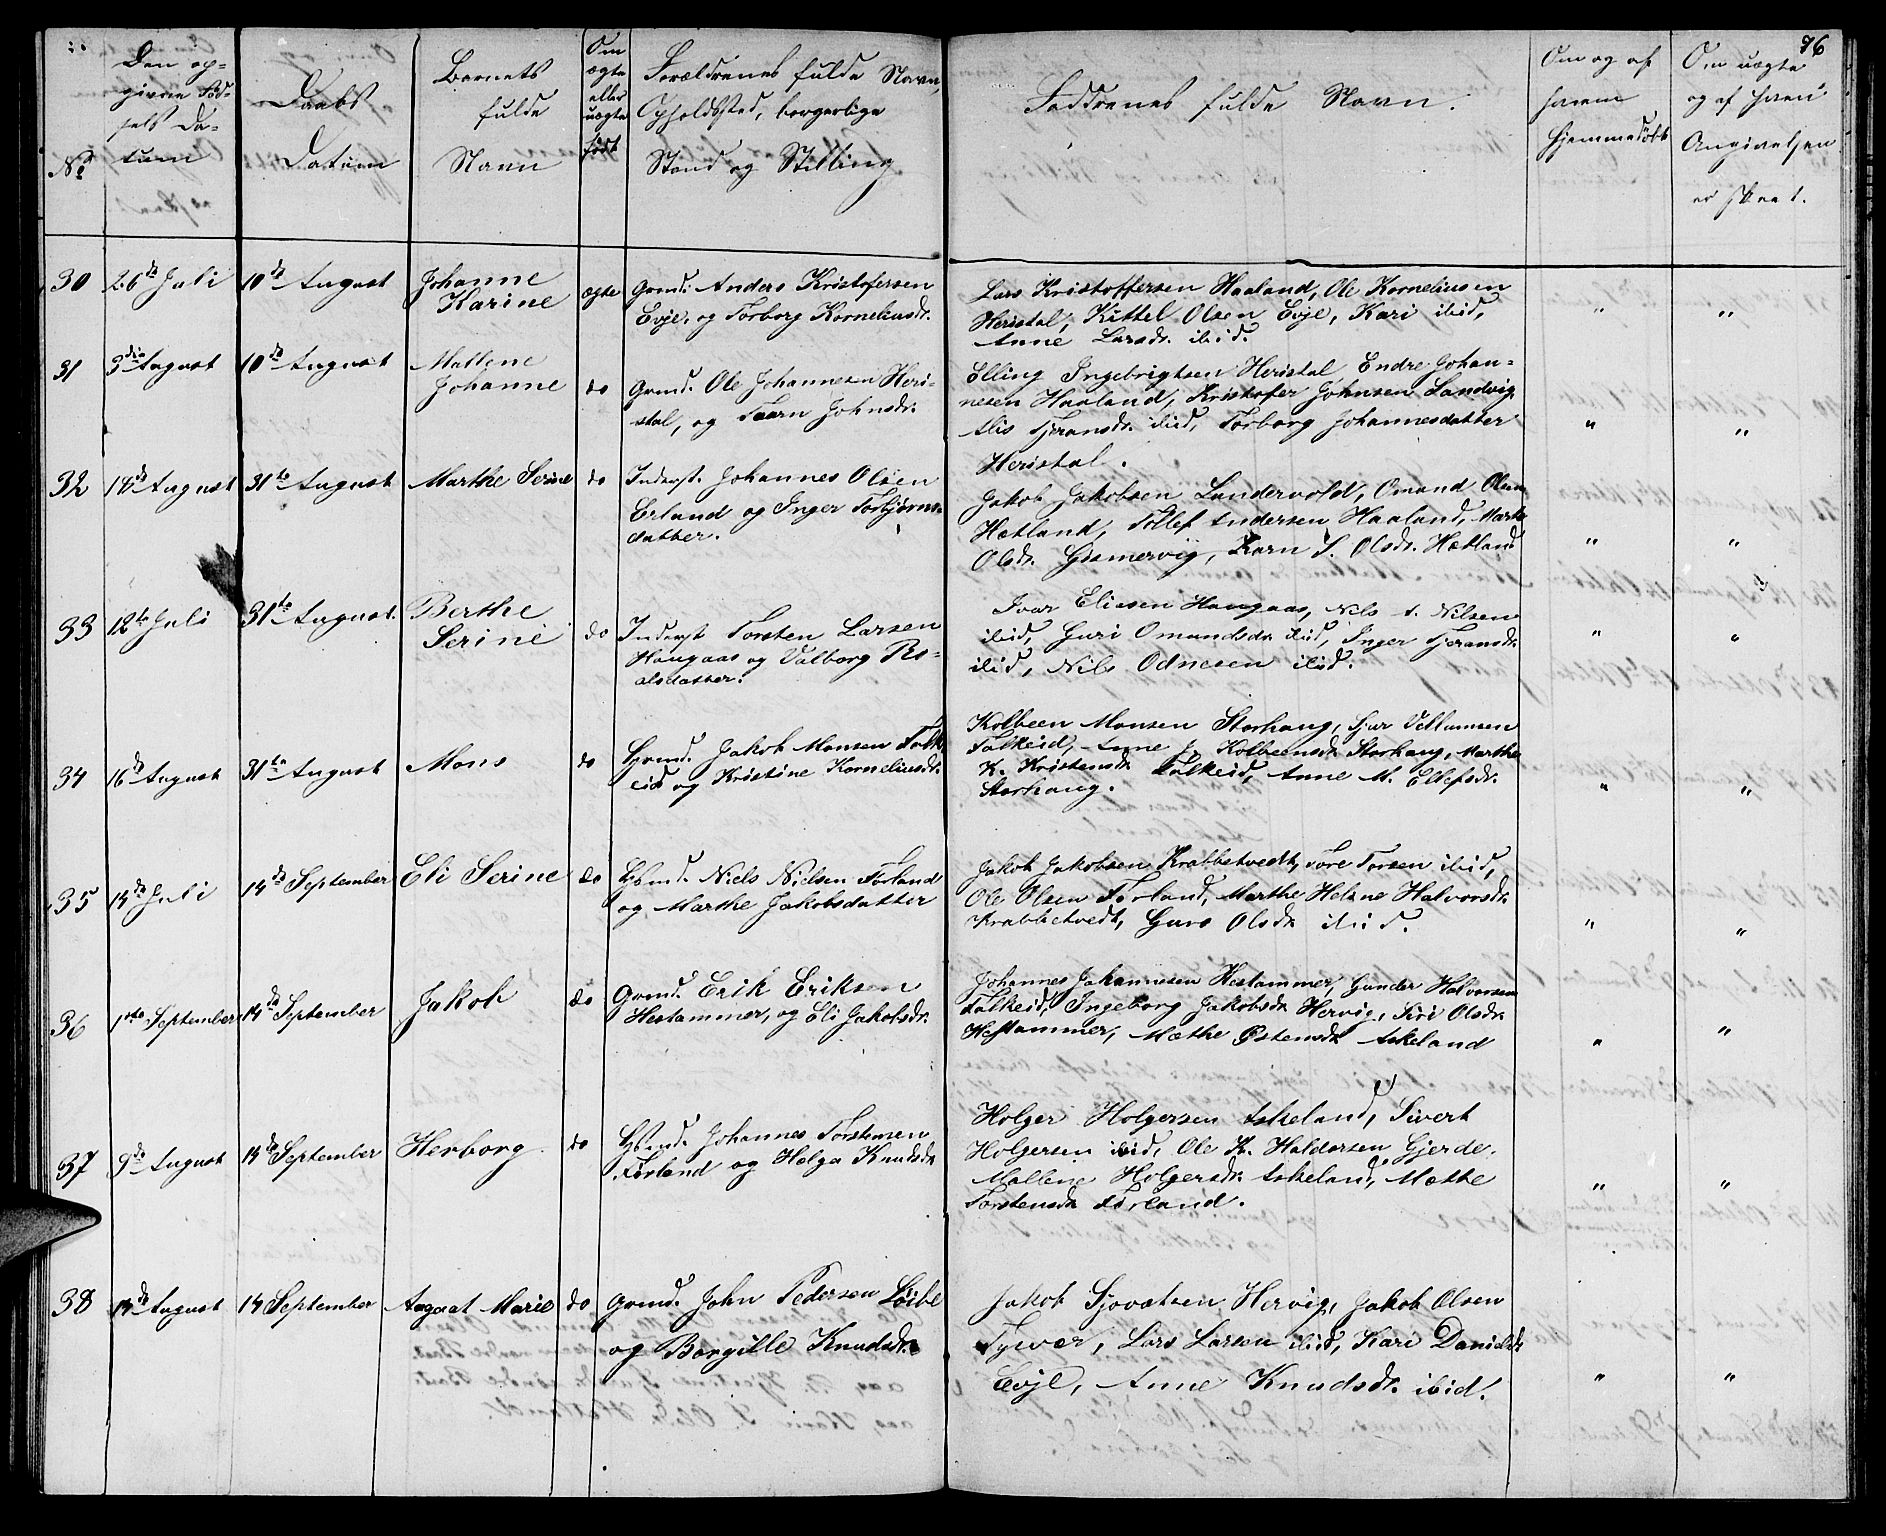 76
Den op-
givne Fød-
sels Da-
tum
No
Daabs
Datum
Barnets
fulde
Navn
Om
ægte
eller
uægte
født
Forældrenes fulde Navn,
Opholdssted, borgerlige
Stand og Stilling
Faddrenes fulde Navn.
Om og af
hvem
hjemmedøbt
Om uægte
og af hvem
Angivelsen
er skeet.
30 26de Juli 10de August Johanne
Karine
ægte
Grmd. Anders Kristofersen
Evje, og Torborg Kornelius dr.
Lars Kristoffersen Haaland, Ole Korneliusen
Heristal, Kittel Olsen Evje, Kari ibid,
Anne Larsdr. ibid.
" "
31 3die August 10de August Mallene
Johanne
do
Grmd. Ole Johannesen Heri-
stal, og Taarn Johnsdr.
Elling Ingebrigtsen Heristal Endre Johan-
nesen Haaland, Kristofer Johnsen Sandvig
Alis Tjeransdr. ibid, Torborg Johannesdatter
Heristal.
" "
32 18de August 31te August Marthe Serine do
Inderst. Johannes Olsen
Erland og Inger Torbjørns-
datter.
Jakob Jakobsen Landervold, Omund Olsen
Hetland, Tollef Andersen Haaland, Marta
Olsdr. Gismervig, Karn S. Olsdr. Hetland
" "
33 12te Juli 31te August. Berthe
Serine
do
Inderst Torsten Larsen
Haugaas og Valborg Ro-
alsdatter.
Ivar Eliasen Haugaas, Nils A. Nilsen
ibid, Guri Omundsdr. ibid, Inger Tjeransdr.
ibid, Nils Odnesen ibid.
" "
34 16de August 31te August Mons do
Grmd. Jakob Monsen Falk-
eid og Kristine Korneliusdr.
Kolbeen Monsen Storhaug, Sjur Vellumsen
Falkeid, Anne J. Kolbeensdr. Storhaug, Marthe
K. Kristensdr. Falkeid, Anne M. Ellefsdr.
Storhaug.
" "
35 14de Juli 14de September Eli Serine do
Hsmd. Niels Nielsen Førland
og Marthe Jakobsdatter
Jakob Jakobsen Krabbetvedt, Tore Torsen ibid,
Ole Olsen Førland, Marthe Helene Halvorsdr.
Krabbetvedt, Guro Olsdr. ibid.
" "
36 1ste September 14de September Jakob do
Grmd. Erik Eriksen
Hestammer, og Eli Jakobsdr.
Johannes Johannesen Hestammer, Gunder Halvorsen
Falkeid, Ingeborg Jakobsdr. Hervig, Siri Olsdr.
Hestammer, Mæthe Østensdr. Askeland
" "
37 9de August 14de September Herborg do
Hsmd. Johannes Torstensen
Førland og Helga Knudsdr.
Holger Holgersen Askeland, Sivert
Holgersen ibid, Ole K. Haldorsen Gjerde.
Mallene Holgersdr. Askeland, Mæthe
Torstensdr. Førland.
" "
38 14de August 14 September August Marie do
Grmd. John Pedersen Løibe
og Borgille Knudsdr.
Jakob Sjovatsen Hervig, Jakob Olsen
Tysvær, Lars Larsen ibid, Kari Danielsdr.
Evje, Anne Knudsdr. ibid.
" "